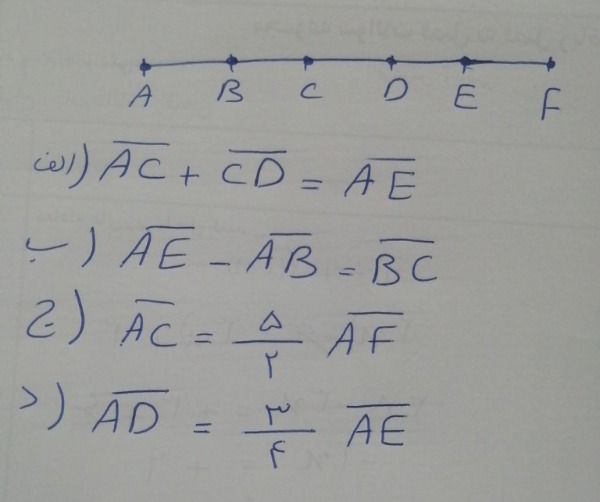 A B C D E F
الف) AC + CD = AE
ب) AE - AB = BC
ج) AC = ۵/۲ AF
د) AD = ۳/۴ AE